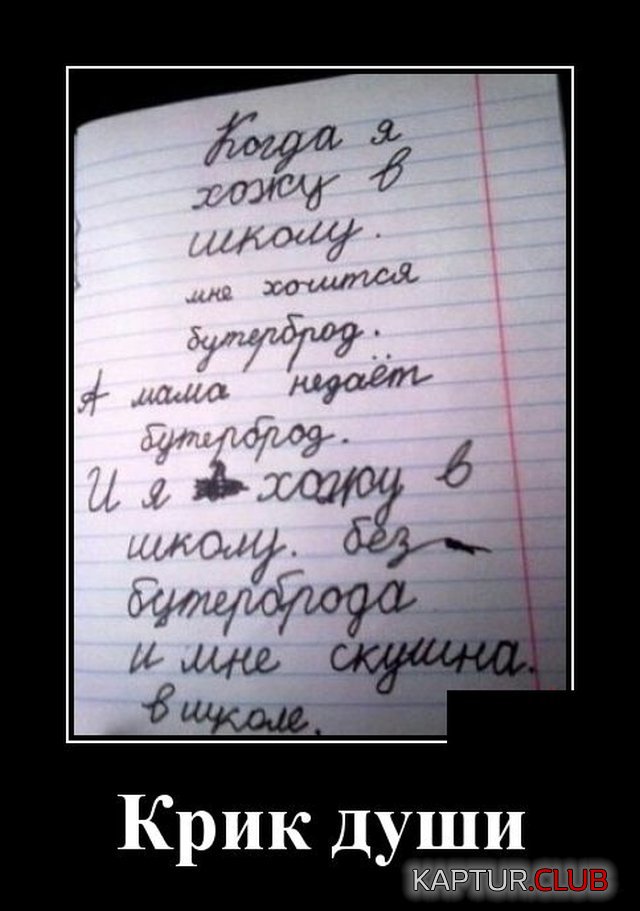 Когда я
хожу в
школу.
мне хочится
бутерброд.
А мама недаёт
бутерброд.
И я хожу в
школу. без
бутерброда
и мне скушна.
в школе.
Крик души
KAPTUR.CLUB